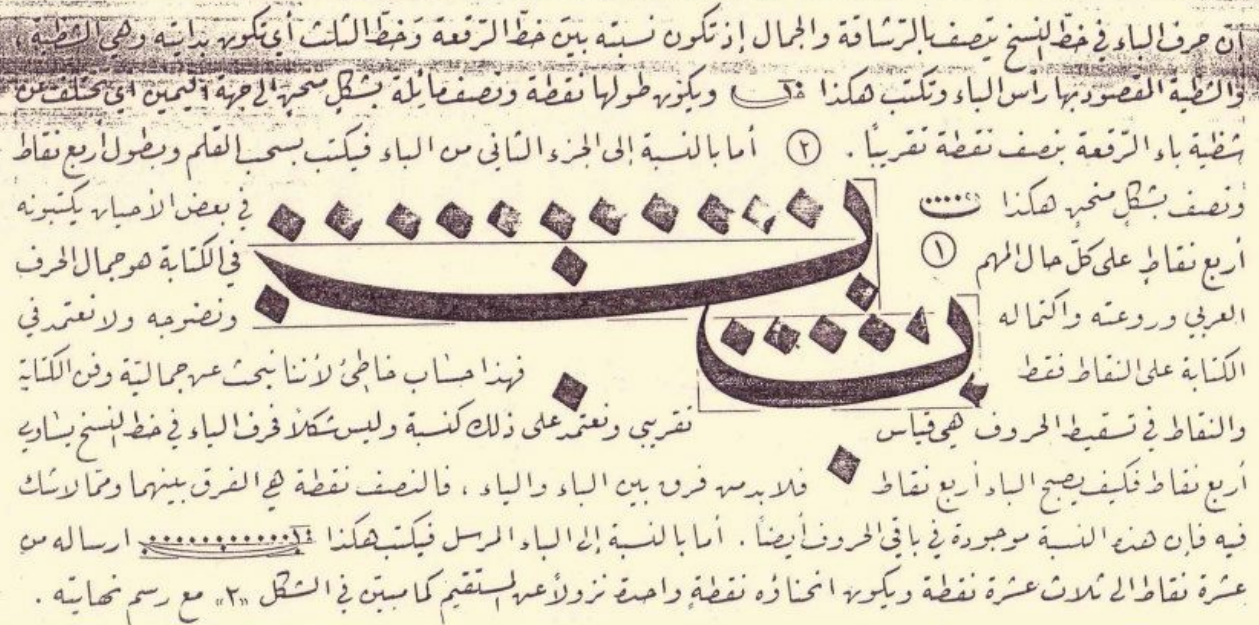 إن حرف الباء في خط النسخ يتصف بالرشاقة والجمال إذ تكون نسبته بين خط الرقعة وخط الثلث أي تكون بدايته وهي الشظية ،
والشظية المقصود بها رأس الباء وتكتب هكذا ويكون طولها نقطة ونصف مايلة بشكل منحنٍ إلى جهة اليمين أي تختلف عن
شظية باء الرقعة بنصف نقطة تقريباً . ٢ أما بالنسبة إلى الجزء الثاني من الباء فيكتب بسحب القلم وبطول أربع نقاط
ونصف بشكلٍ منحنٍ هكذا في بعض الأحيان يكتبونه
أربع نقاطٍ على كل حال المهم ١ في الكتابة هو جمال الحرف
العربي وروعته واكتماله ونضوجه ولا نعتمد في
الكتابة على النقاط فقط فهذا حساب خاطئ لأننا نبحث عن جمالية وفن الكتابة
والنقاط في تسقيط الحروف هي قياس تقريبي ونعتمد على ذلك كنسبة وليس شكلاً فحرف الياء في خط النسخ يساوي
أربع نقاط فكيف يصبح الباء أربع نقاط فلا بد من فرق بين الباء والياء ، فالنصف نقطة هي الفرق بينهما ومما لاشك
فيه فإن هذه النسبة موجودة في باقي الحروف أيضاً . أما بالنسبة إلى الباء المرسل فيكتب هكذا ارساله من
عشرة نقاط الى ثلاث عشرة نقطة ويكون انحناؤه نقطةٍ واحدة نزولاً عن المستقيم كما مبين في الشكل «٢» مع رسم نهايته .